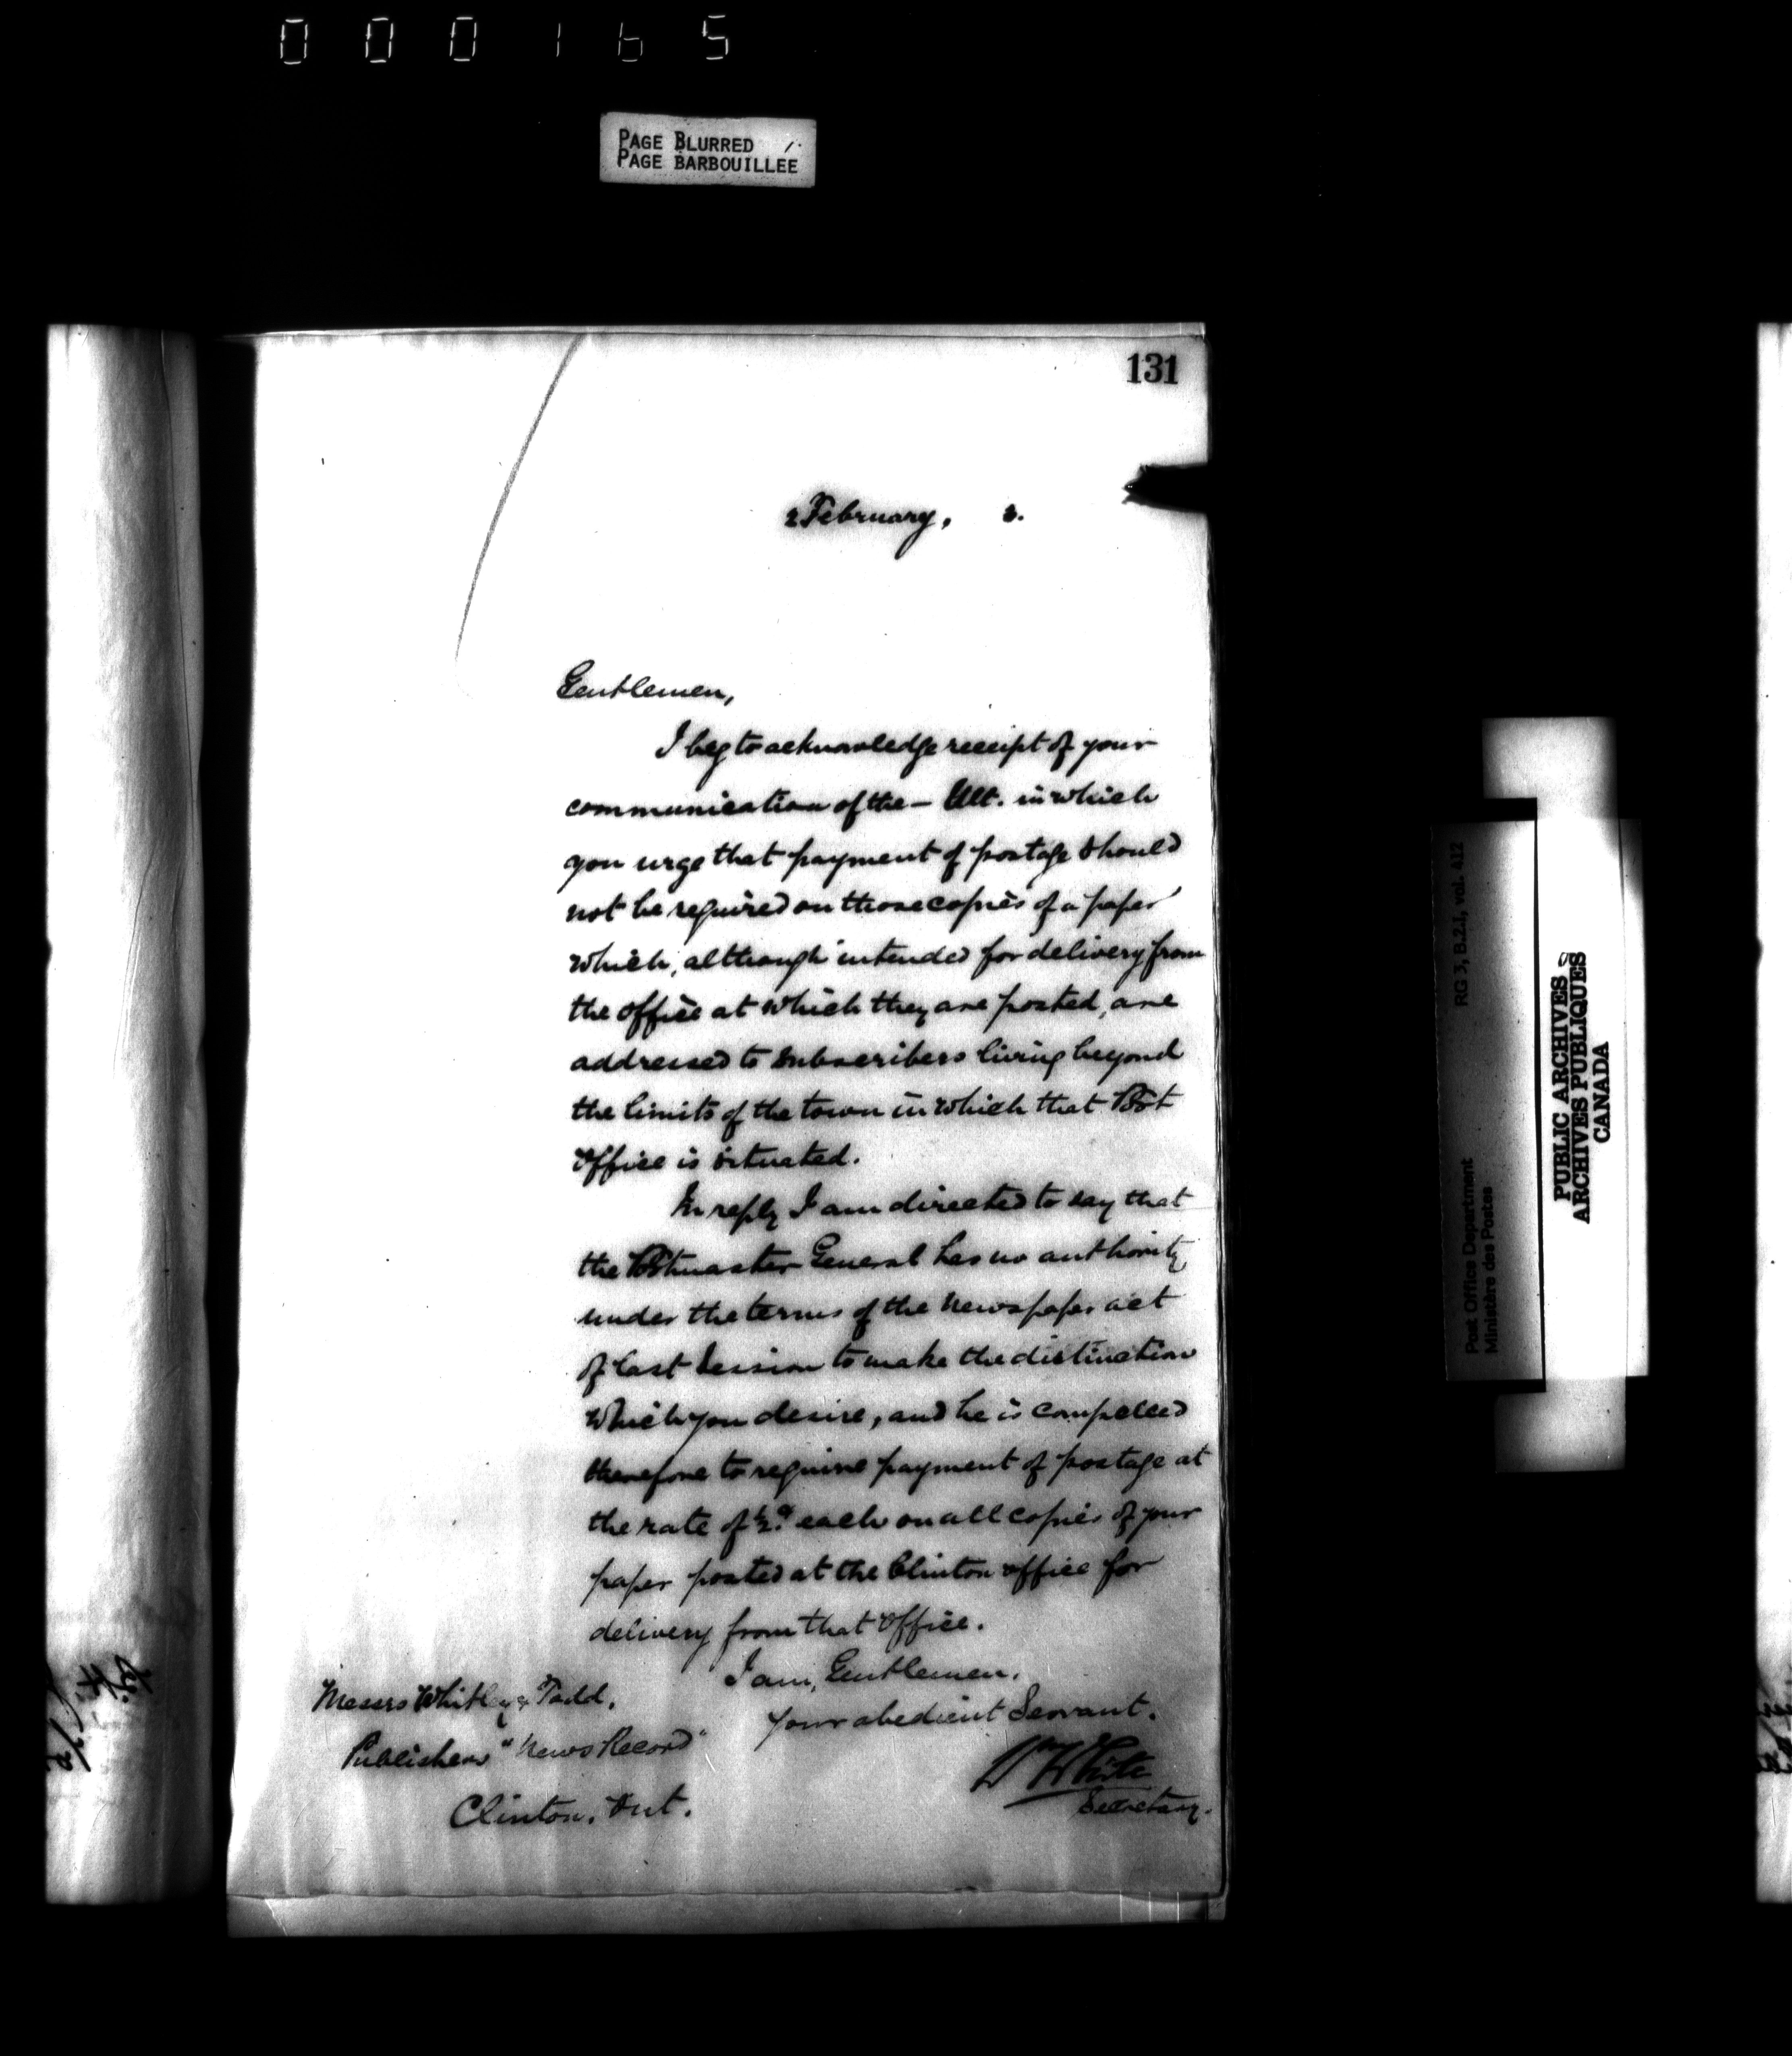 000165
PAGE BLURRED
PAGE BARBOUILLÉE
131
2 February, 3.
Gentlemen,
I beg to acknowledge receipt of your
communication of the — Ult. in which
you urge that payment of postage should
not be required on those copies of a paper
which, although intended for delivery from
the office at which they are posted, are
addressed to subscribers living beyond
the limits of the town in which that Post
Office is situated.
In reply I am directed to say that
the Postmaster General has no authority
under the terms of the newspaper act
of last session to make the distinction
which you desire, and he is compelled
therefore to require payment of postage at
the rate of ½c. each on all copies of your
paper posted at the Clinton office for
delivery from that office.
I am, Gentlemen,
Your obedient Servant.
Wm White
Secretary.
Messrs Whitley & Todd,
Publishers "News Record"
Clinton, Ont.
RG 3, B.2.1, vol. 412
Post Office Department
Ministère des Postes
PUBLIC ARCHIVES
ARCHIVES PUBLIQUES
CANADA